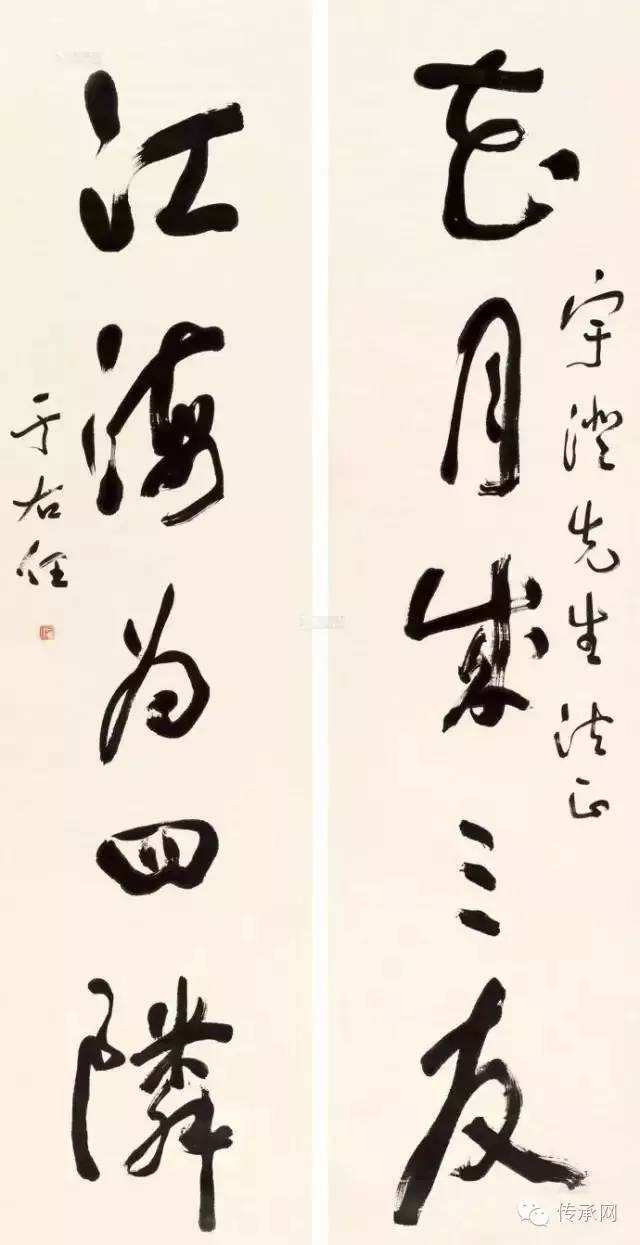 花月成三友
宇澄先生法正
江海为四隣
于右任
传承网